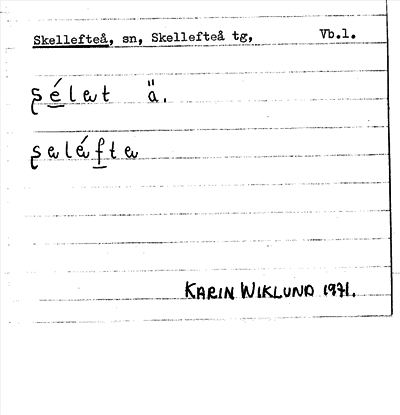 Skellefteå, sn, Skellefteå tg, Vb.l.
ʂé̲lat ä.
ʂaláf̲ta
KARIN WIKLUND 1971.